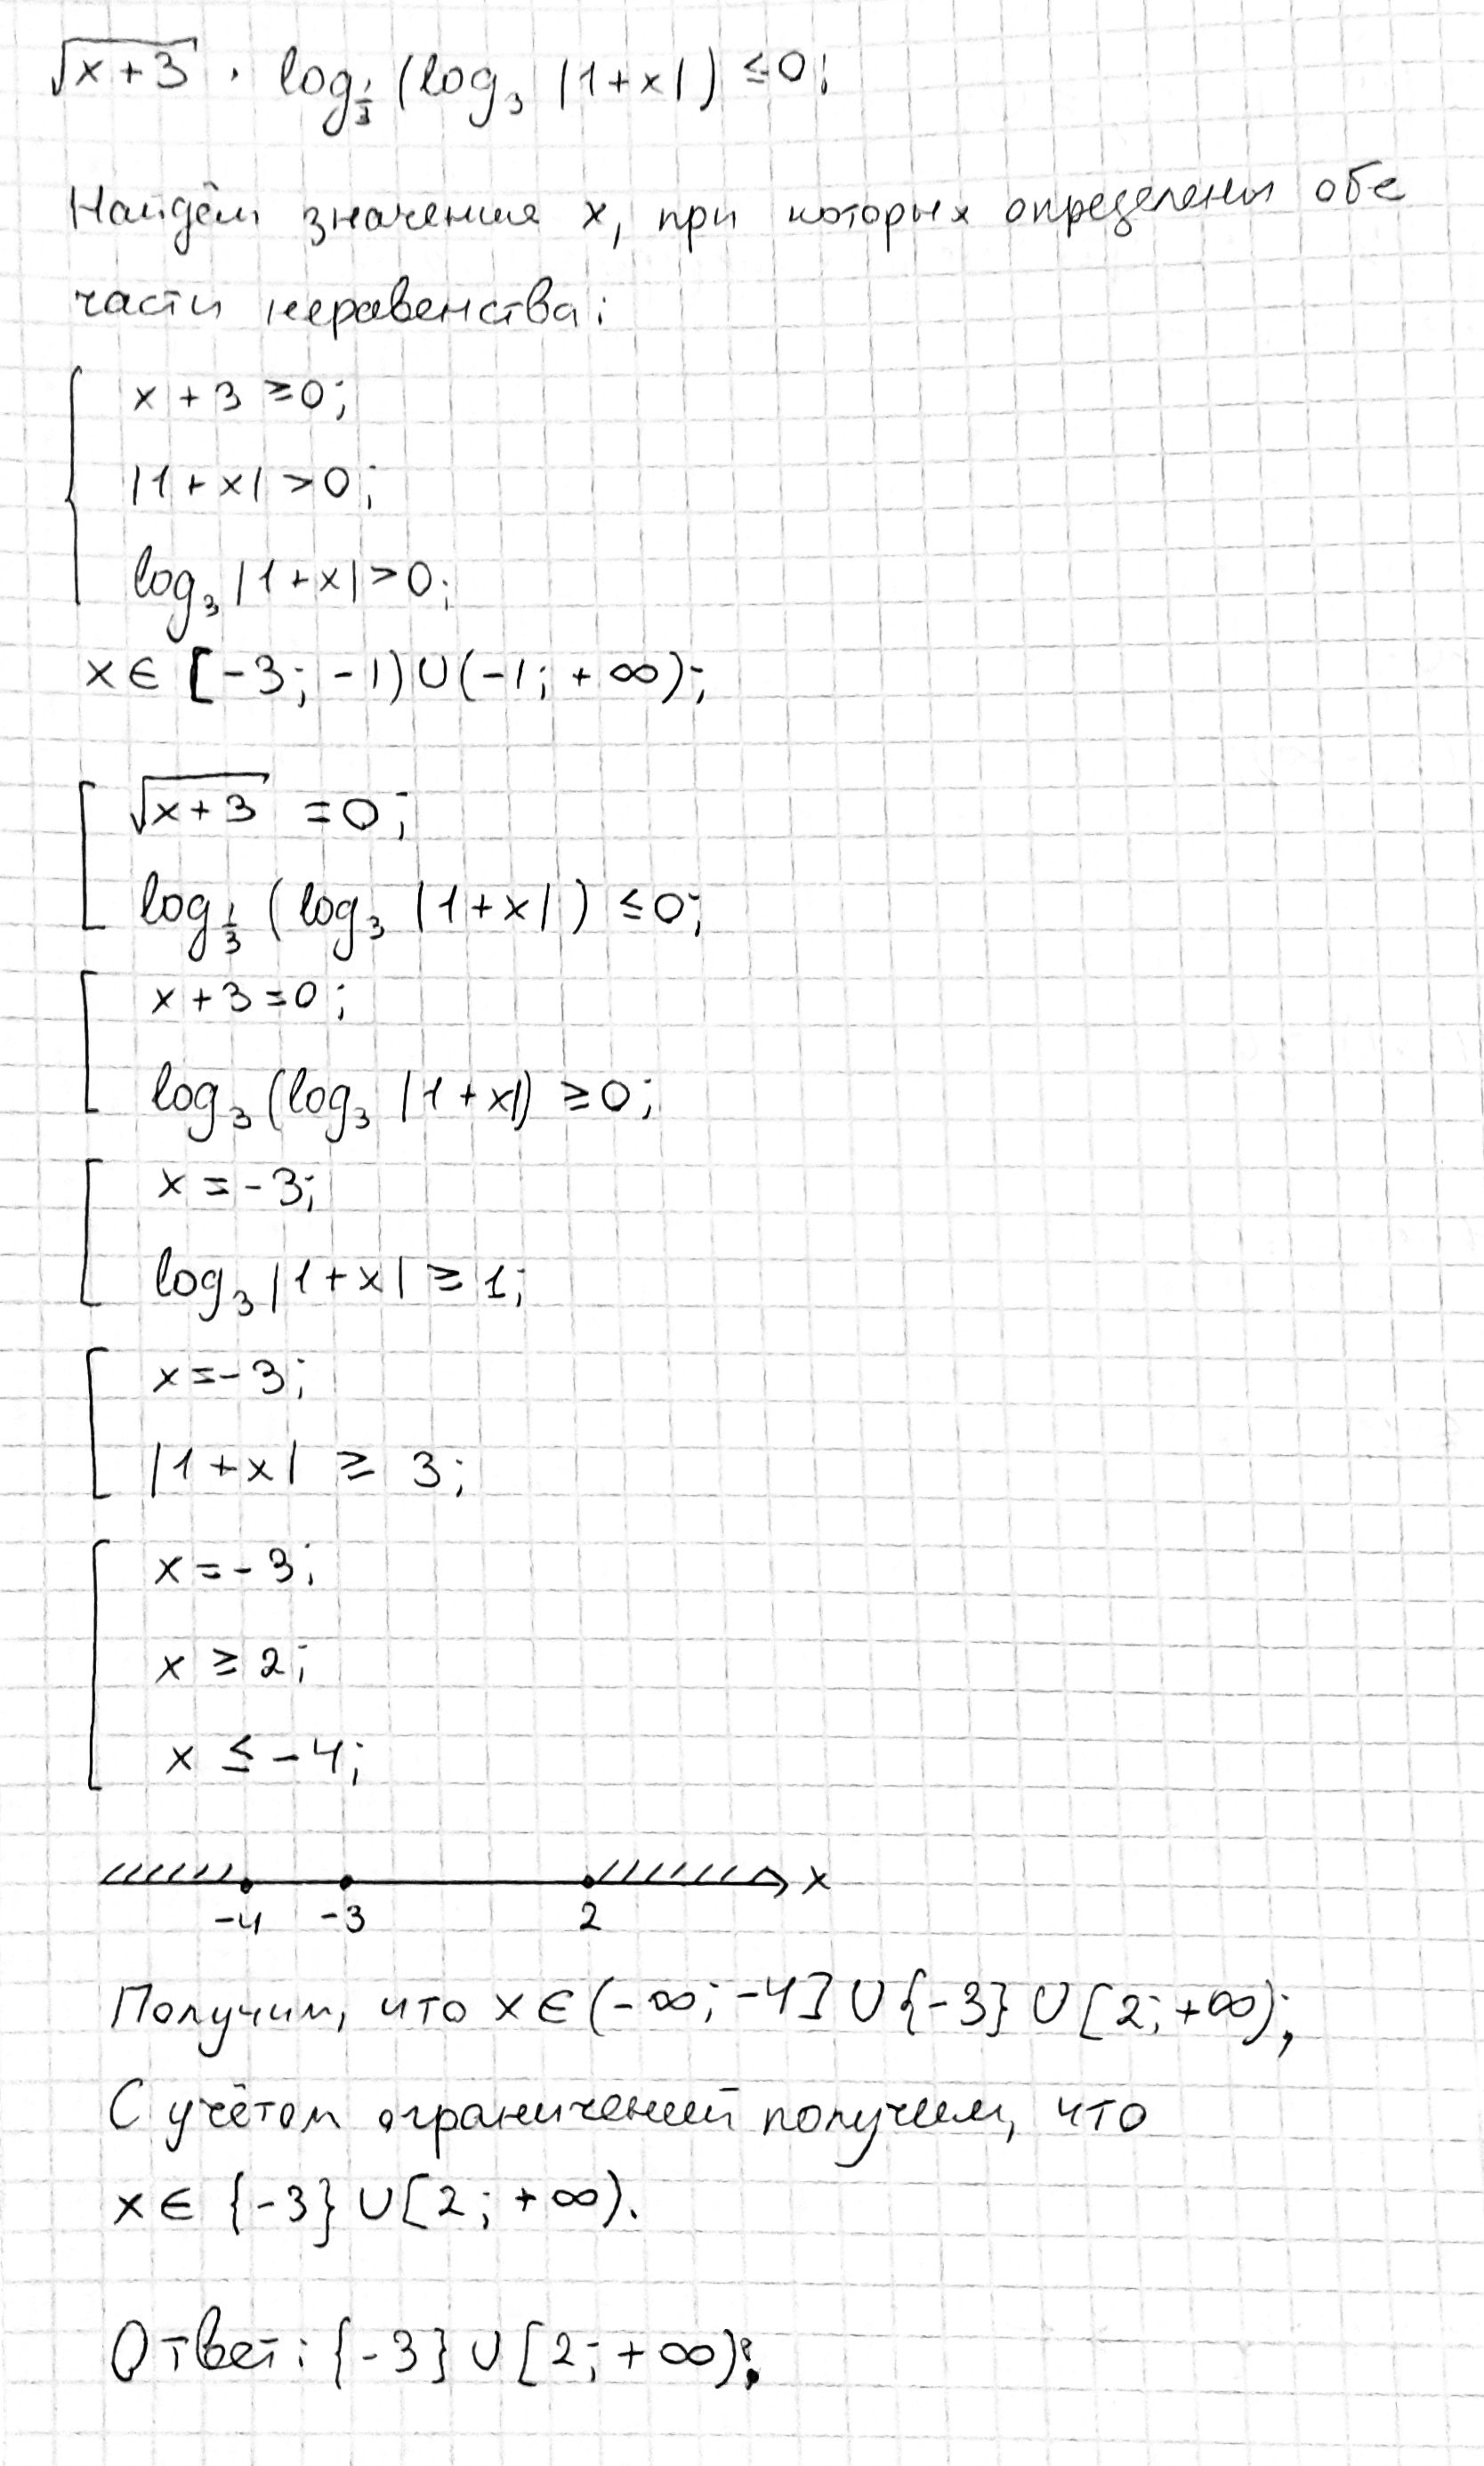 √(x+3) · log_{1/3} (log_3 |1+x|) ≤ 0;
Найдём значения x, при которых определены обе
части неравенства:
{ x + 3 ≥ 0;
|1 + x| > 0;
log_3 |1 + x| > 0;
x ∈ [-3; -1) ∪ (-1; +∞);
[ √(x+3) = 0;
log_{1/3} (log_3 |1+x|) ≤ 0;
[ x + 3 = 0;
log_3 (log_3 |1+x|) ≥ 0;
[ x = -3;
log_3 |1+x| ≥ 1;
[ x = -3;
|1+x| ≥ 3;
[ x = -3;
x ≥ 2;
x ≤ -4;
x
-4 -3 2
Получим, что x ∈ (-∞; -4] ∪ {-3} ∪ [2; +∞);
С учётом ограничений получим, что
x ∈ {-3} ∪ [2; +∞).
Ответ: {-3} ∪ [2; +∞);